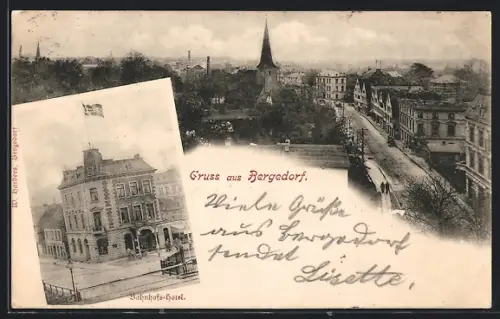 W. Harders, Bergedorf
Gruss aus Bergedorf.
Viele Grüße
aus Bergedorf
sendet
Lisette,
Bahnhofs-Hotel.